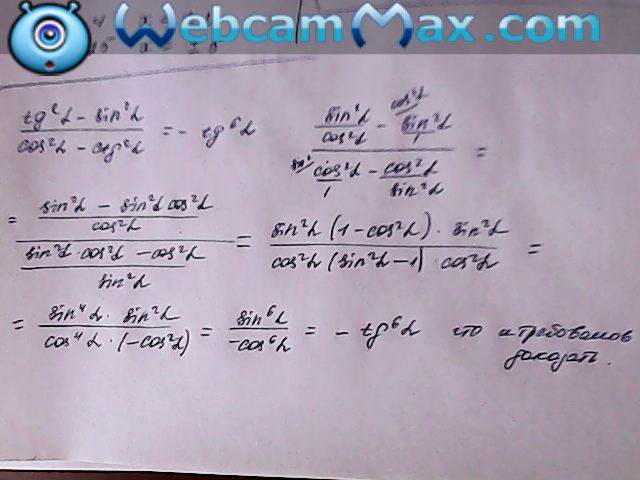 WebcamMax.com
tg²α - sin²α / cos²α - ctg²α = - tg⁶α
sin²α/cos²α - cos²α/ sin²α/1 / sin²/ cos²α/1 - cos²α/sin²α =
= sin²α - sin²α cos²α / cos²α / sin²α · cos²α - cos²α / sin²α = sin²α (1 - cos²α) · sin²α / cos²α (sin²α - 1) · cos²α =
= sin⁴α · sin²α / cos⁴α · (-cos²α) = sin⁶α / -cos⁶α = - tg⁶α что и требовалось
доказать.